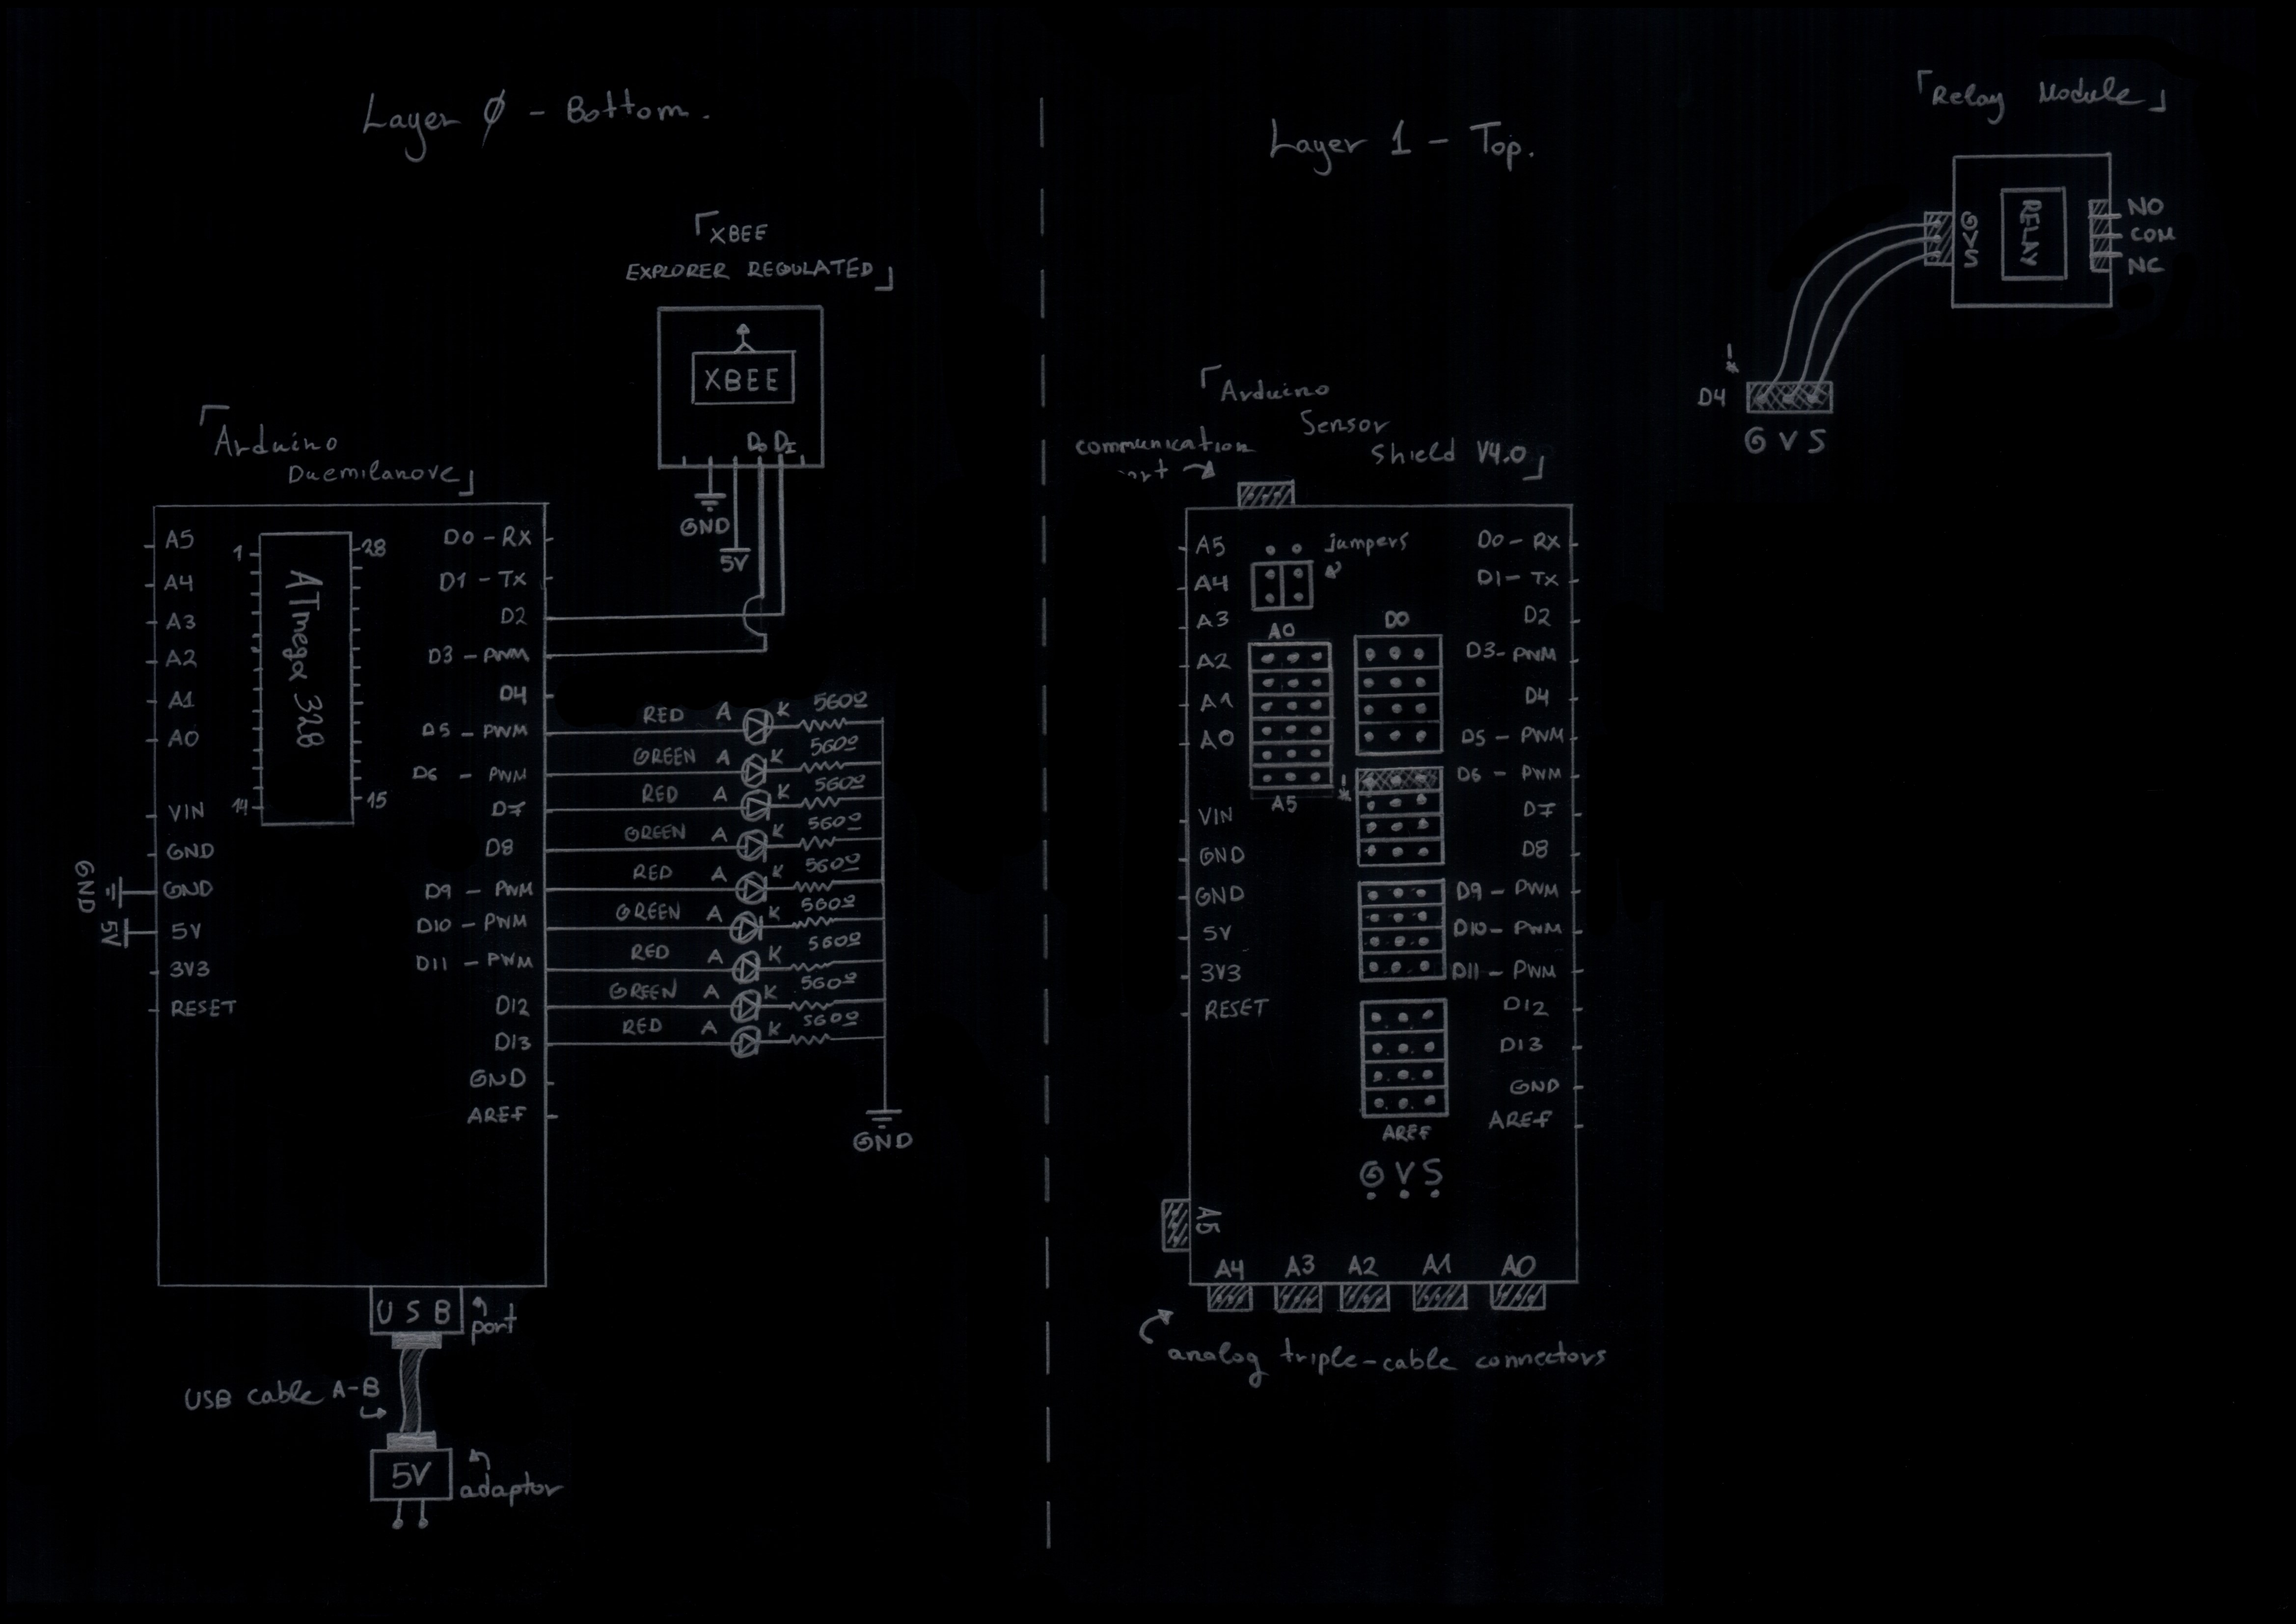 Layer 0 - Bottom.
「XBEE
EXPLORER REGULATED」
XBEE
DO DI
GND
5V
「Arduino
Duemilanove」
A5
A4
A3
A2
A1
A0
VIN
GND
GND
5V
3V3
RESET
GND
5V
1
28
ATmega 328
14
15
D0 - RX
D1 - TX
D2
D3 - PWM
D4
D5 - PWM
D6 - PWM
D7
D8
D9 - PWM
D10 - PWM
D11 - PWM
D12
D13
GND
AREF
RED A K 560Ω
GREEN A K 560Ω
RED A K 560Ω
GREEN A K 560Ω
RED A K 560Ω
GREEN A K 560Ω
RED A K 560Ω
GREEN A K 560Ω
RED A K 560Ω
GND
USB
port
USB cable A-B
5V
adaptor
Layer 1 - Top.
「Arduino
Sensor
Shield V4.0」
communication
A5
A4
A3
A2
A1
A0
VIN
GND
GND
5V
3V3
RESET
jumpers
A0
A5
D0
!*
AREF
G V S
D0 - RX
D1 - TX
D2
D3 - PWM
D4
D5 - PWM
D6 - PWM
D7
D8
D9 - PWM
D10 - PWM
D11 - PWM
D12
D13
GND
AREF
A5
A4 A3 A2 A1 A0
analog triple-cable connectors
「Relay Module」
G
V
S
RELAY
NO
COM
NC
!*
D4
G V S